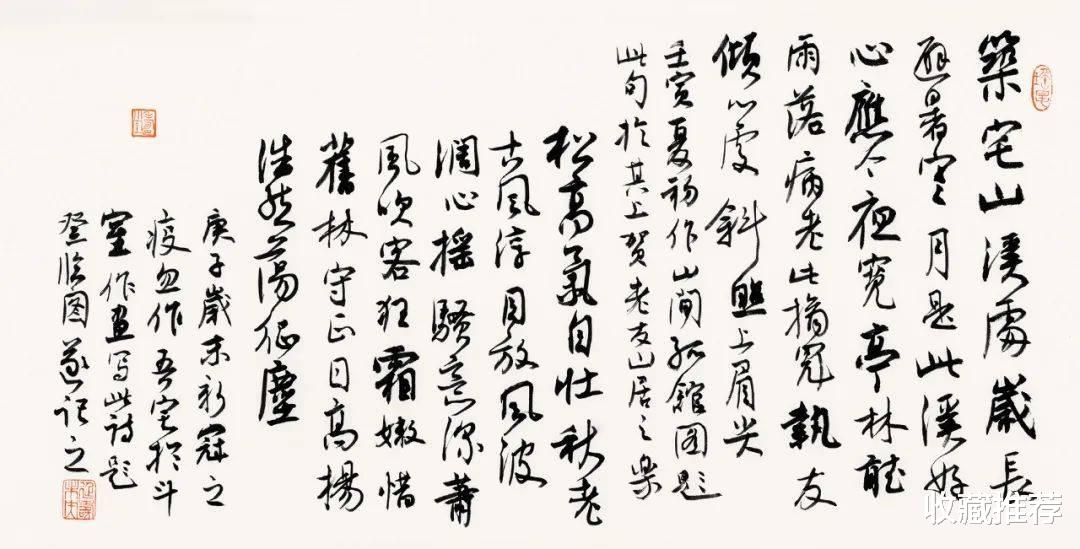 築宅山溪處歲長
避暑寒月是此溪好
心應今夜寬亭林聽
雨落病老此摘冠執友
傾心處斜照上眉尖
壬寅夏初作山間孤館圖題
此句於其上賀老友山居之樂
松高氣自壯秋老
古風淳目放風波
濶心搖騷意深蕭
風吹客狂霜嫩惜
舊林守正日高楊
浩然蕩征塵
庚子歲末新冠之
疫忽作吾宅於斗
室作畫写此詩題
登临图遂記之
收藏推荐